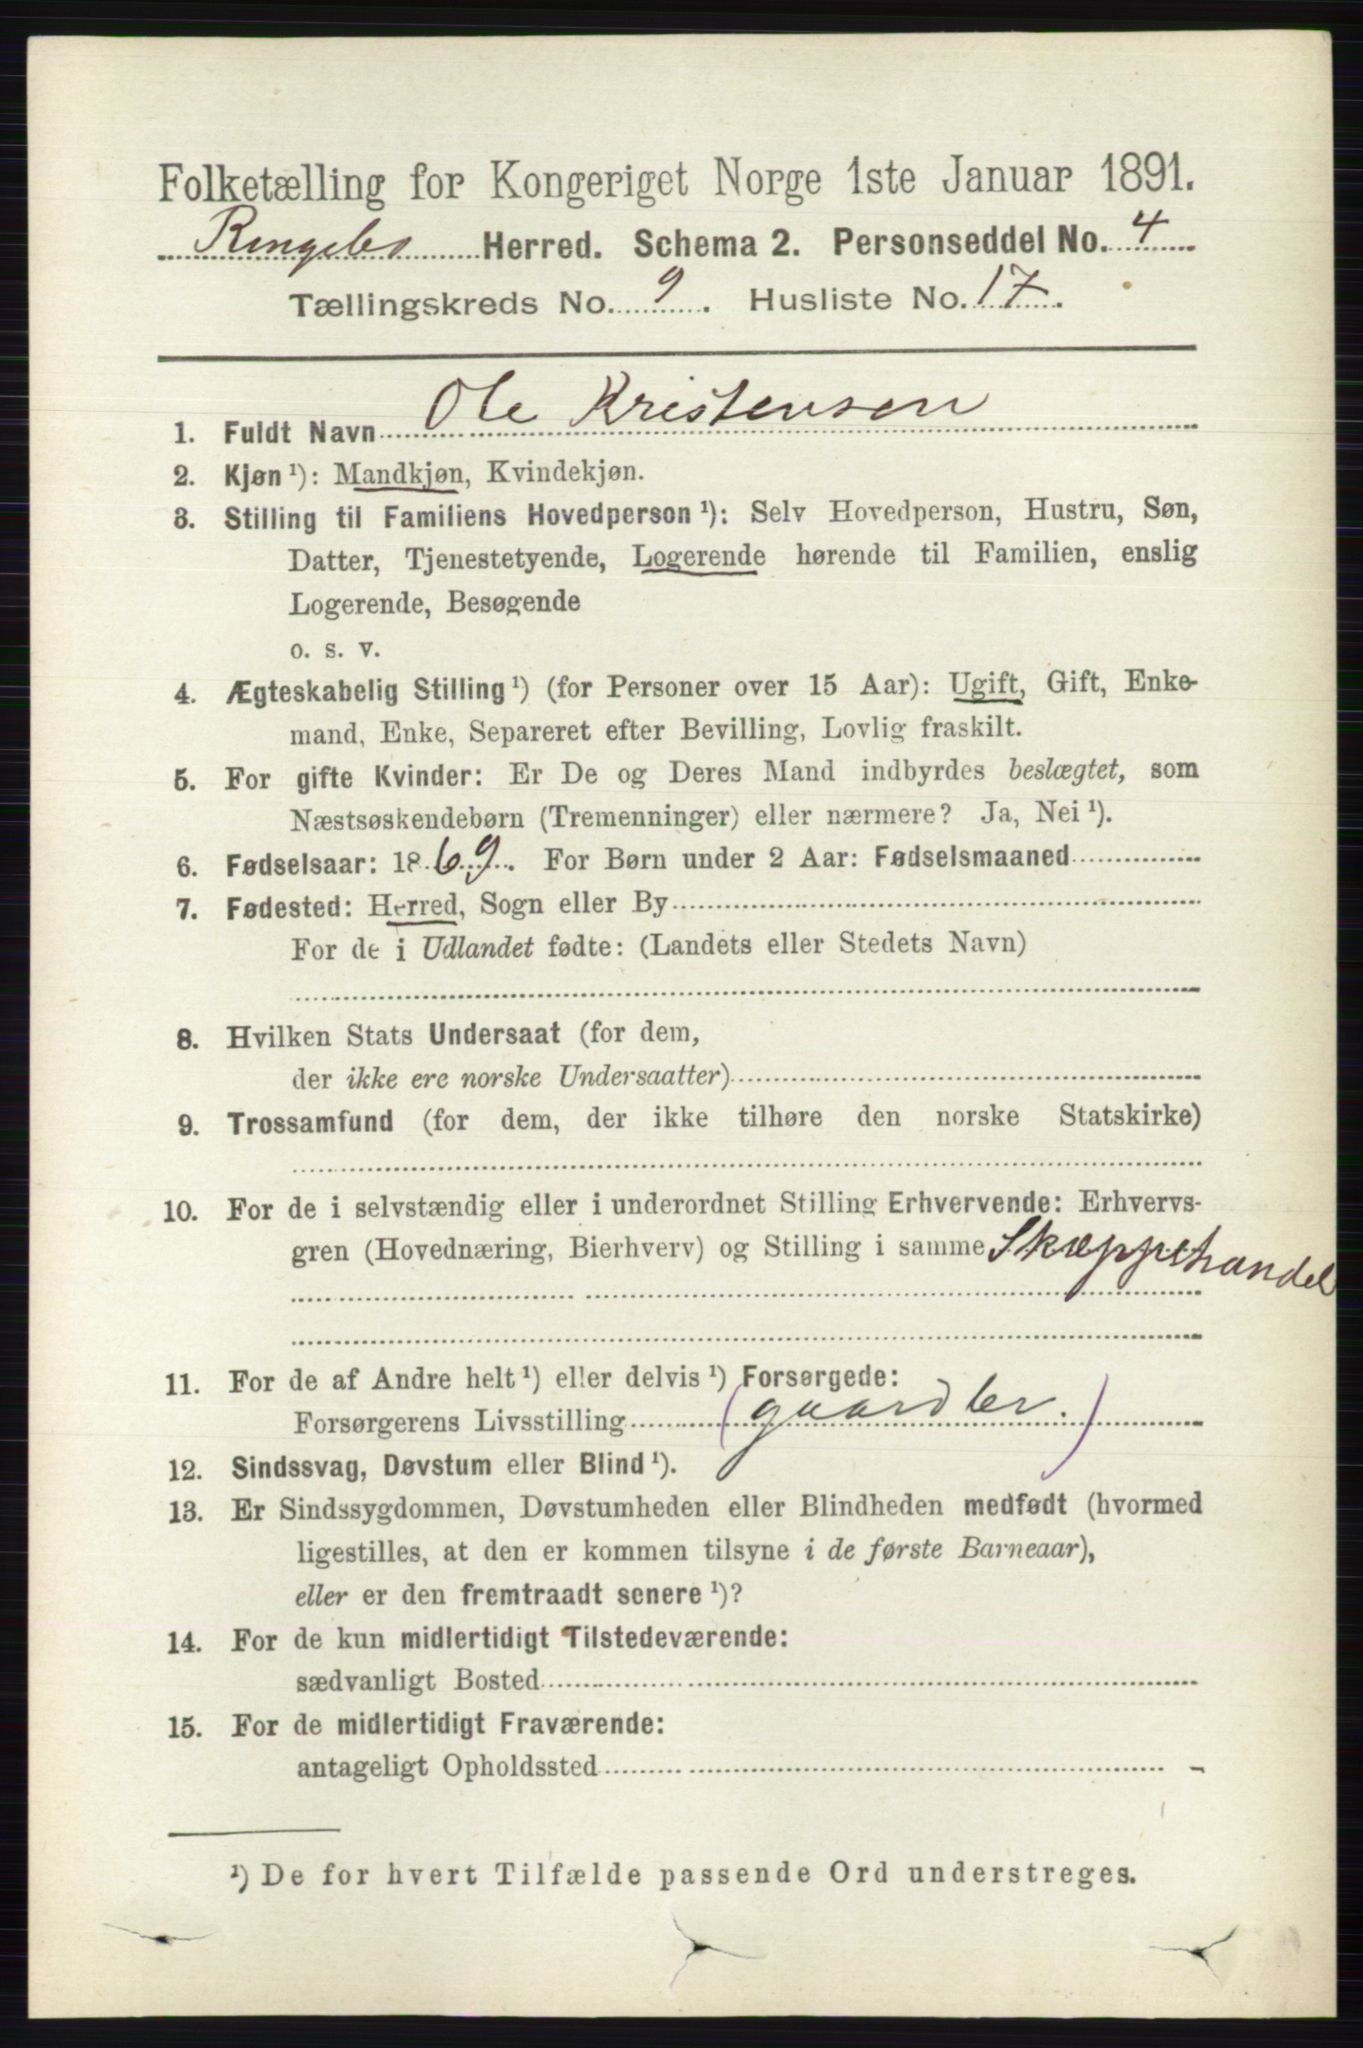 Folketælling for Kongeriget Norge 1ste Januar 1891.
Ringebo Herred. Schema 2. Personseddel No. 4
Tællingskreds No. 9. Husliste No. 17.
1. Fuldt Navn Ole Kristensen
2. Kjøn ¹): Mandkjøn, Kvindekjøn.
3. Stilling til Familiens Hovedperson ¹): Selv Hovedperson, Hustru, Søn,
Datter, Tjenestetyende, Logerende hørende til Familien, enslig
Logerende, Besøgende
o. s. v.
4. Ægteskabelig Stilling ¹) (for Personer over 15 Aar): Ugift, Gift, Enke-
mand, Enke, Separeret efter Bevilling, Lovlig fraskilt.
5. For gifte Kvinder: Er De og Deres Mand indbyrdes beslægtet, som
Næstsøskendebørn (Tremenninger) eller nærmere? Ja, Nei ¹).
6. Fødselsaar: 1869. For Børn under 2 Aar: Fødselsmaaned
7. Fødested: Herred, Sogn eller By
For de i Udlandet fødte: (Landets eller Stedets Navn)
8. Hvilken Stats Undersaat (for dem,
der ikke ere norske Undersaatter)
9. Trossamfund (for dem, der ikke tilhøre den norske Statskirke)
10. For de i selvstændig eller i underordnet Stilling Erhvervende: Erhvervs-
gren (Hovednæring, Bierhverv) og Stilling i samme Skræppehandel
11. For de af Andre helt ¹) eller delvis ¹) Forsørgede:
Forsørgerens Livsstilling (gaardbr.)
12. Sindssvag, Døvstum eller Blind ¹).
13. Er Sindssygdommen, Døvstumheden eller Blindheden medfødt (hvormed
ligestilles, at den er kommen tilsyne i de første Barneaar),
eller er den fremtraadt senere ¹)?
14. For de kun midlertidigt Tilstedeværende:
sædvanligt Bosted
15. For de midlertidigt Fraværende:
antageligt Opholdssted
¹) De for hvert Tilfælde passende Ord understreges.